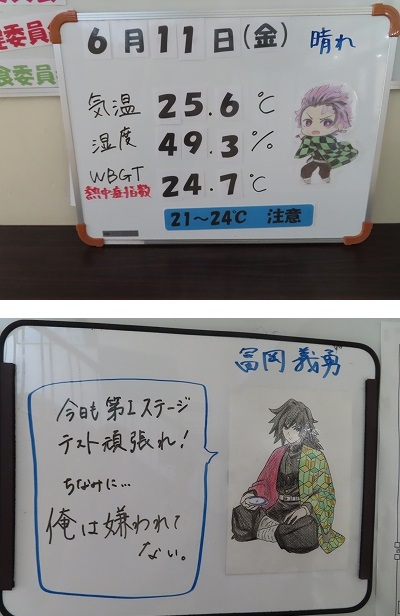 委員
食委員
6月11日(金) 晴れ
気温 25.6 ℃
湿度 49.3 %
WBGT 24.7 ℃
熱中症指数
21～24℃ 注意
冨岡義勇
今日も第1ステージ
テスト頑張れ!
ちなみに…
俺は嫌われて
ない。